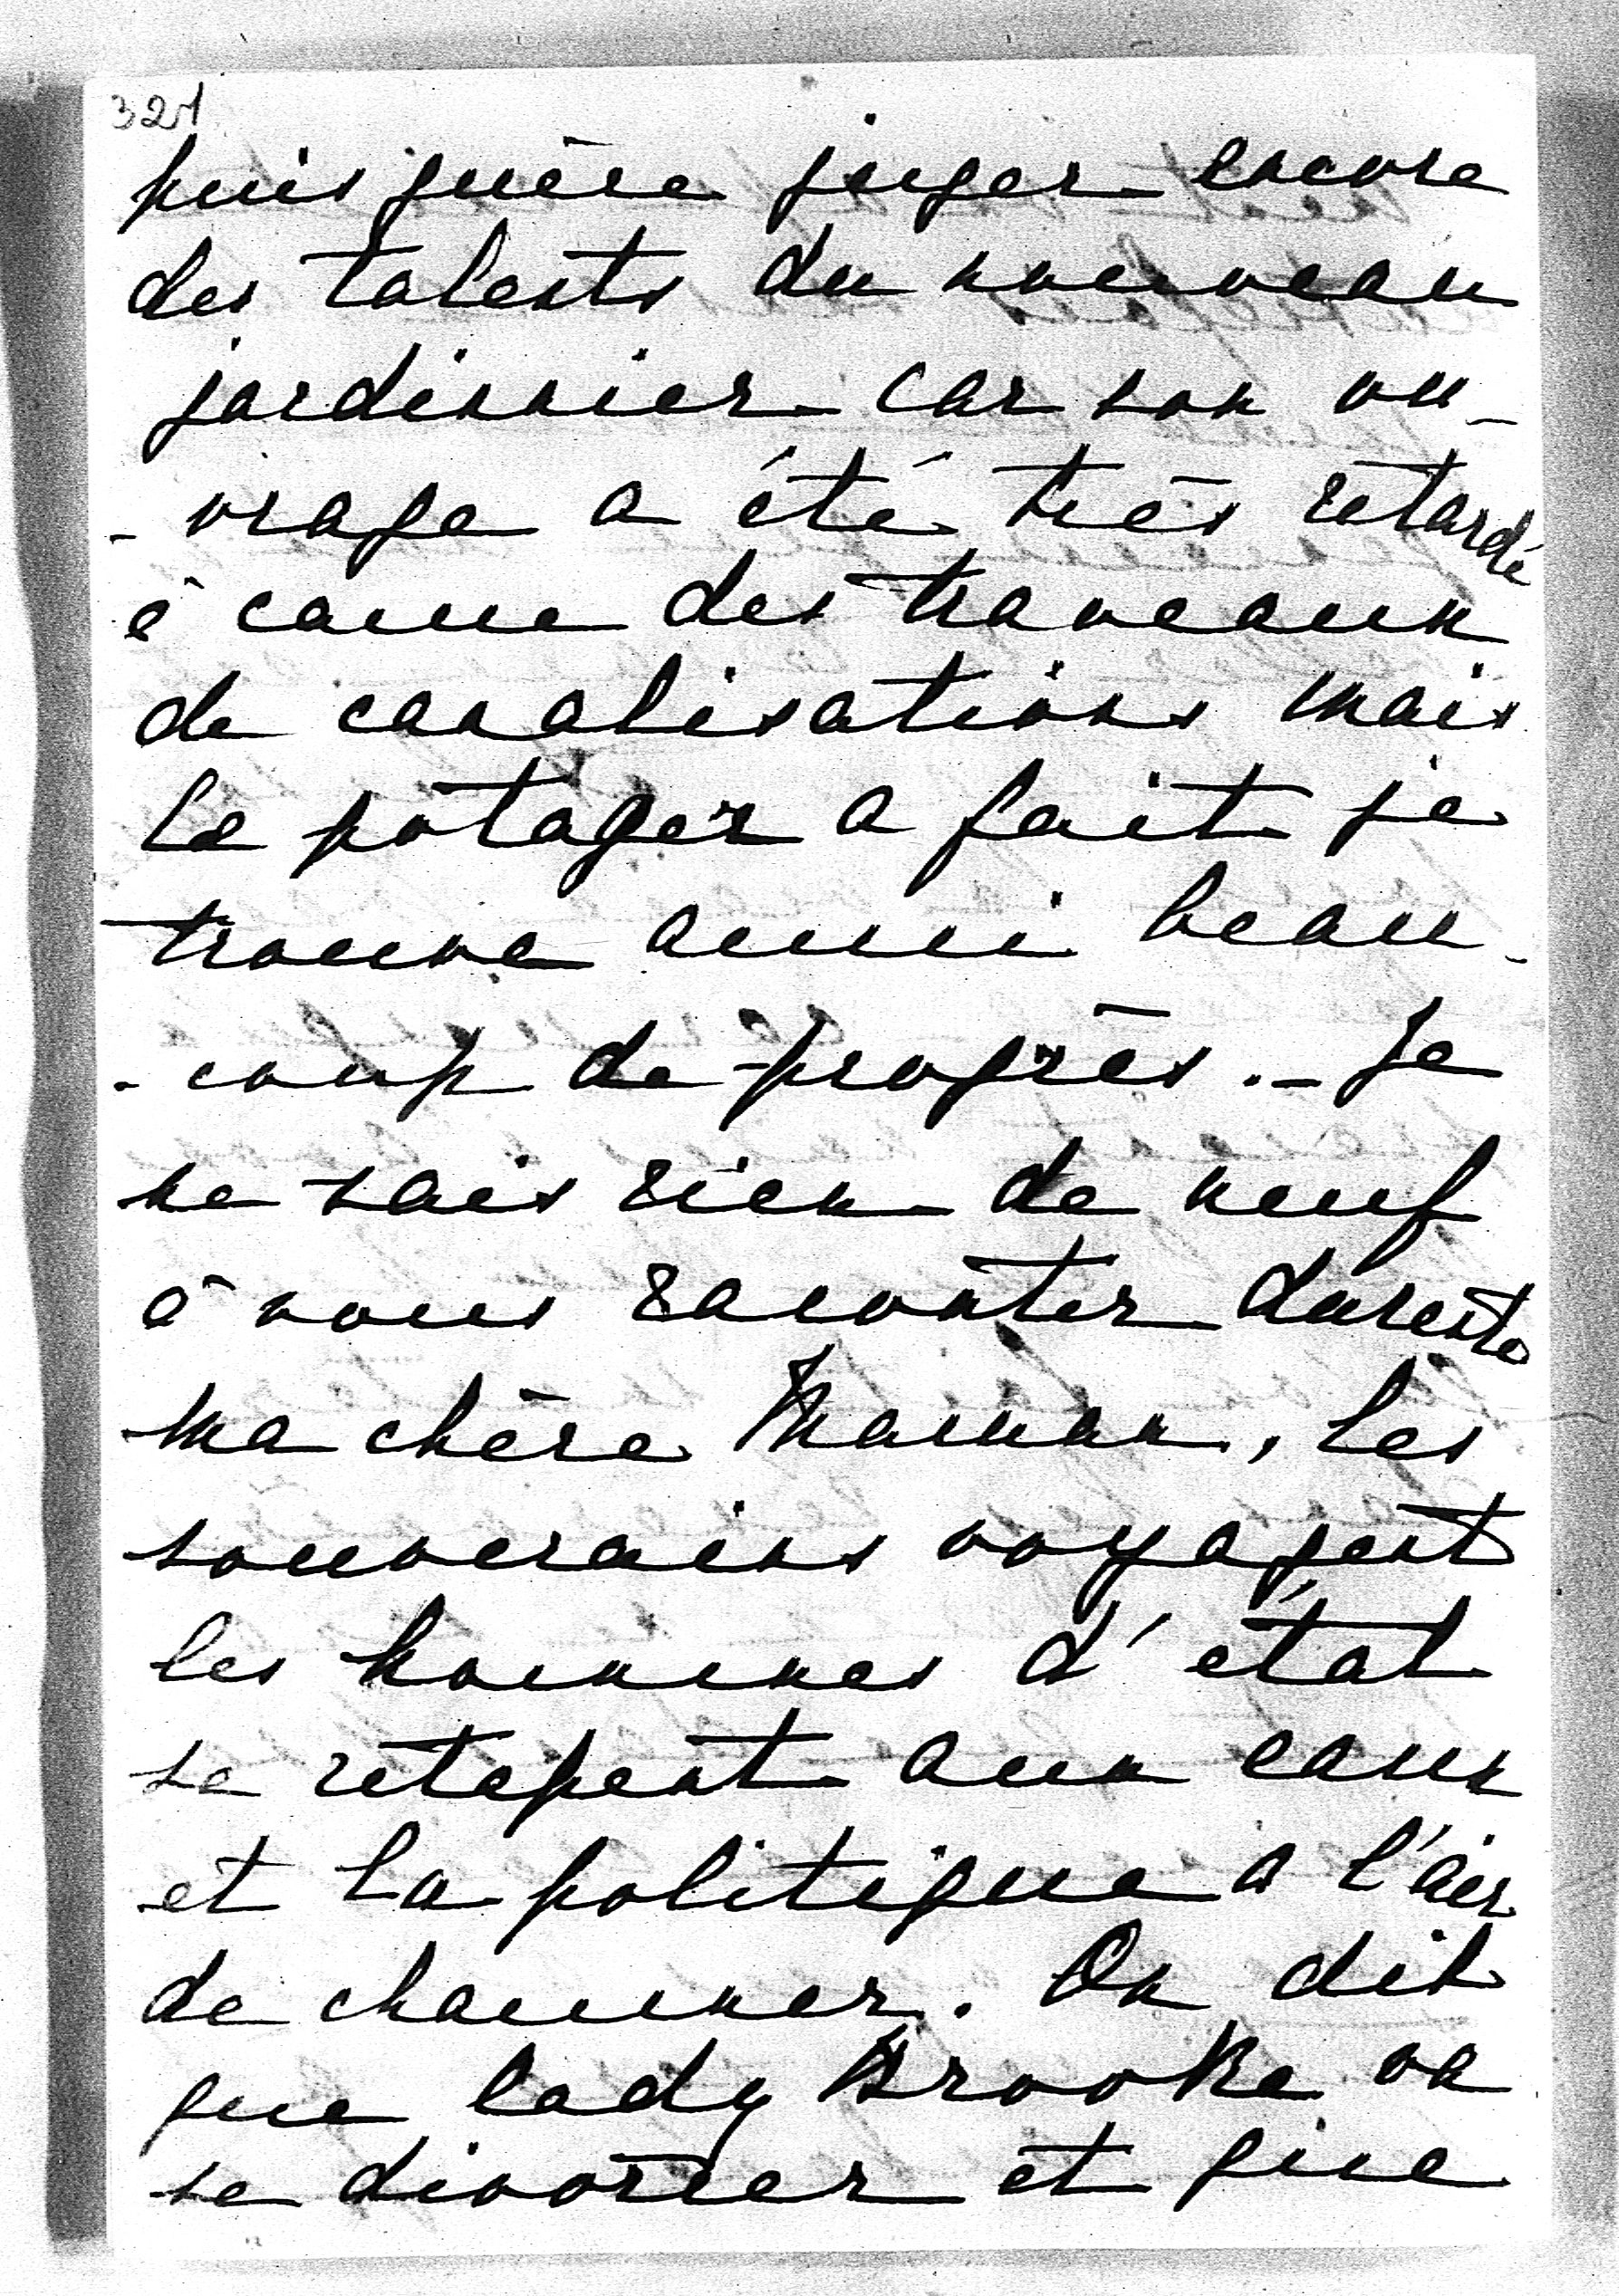 321
puis guère juger encore
des talents du nouveau
jardinnier car son ou-
-vrage a été très retardé
à cause des traveaux
de canalisations mais
le potager a fait je
trouve aussi beau-
-coup de progrès.- Je
ne sais rien de neuf
à vous raconter dureste
ma chère Maman, les
souverains voyagent
les hommes d'état
se retapent aux eaux
et la politique a l'air
de chaumer. On dit
que lady Brooke va
se divorcer et que